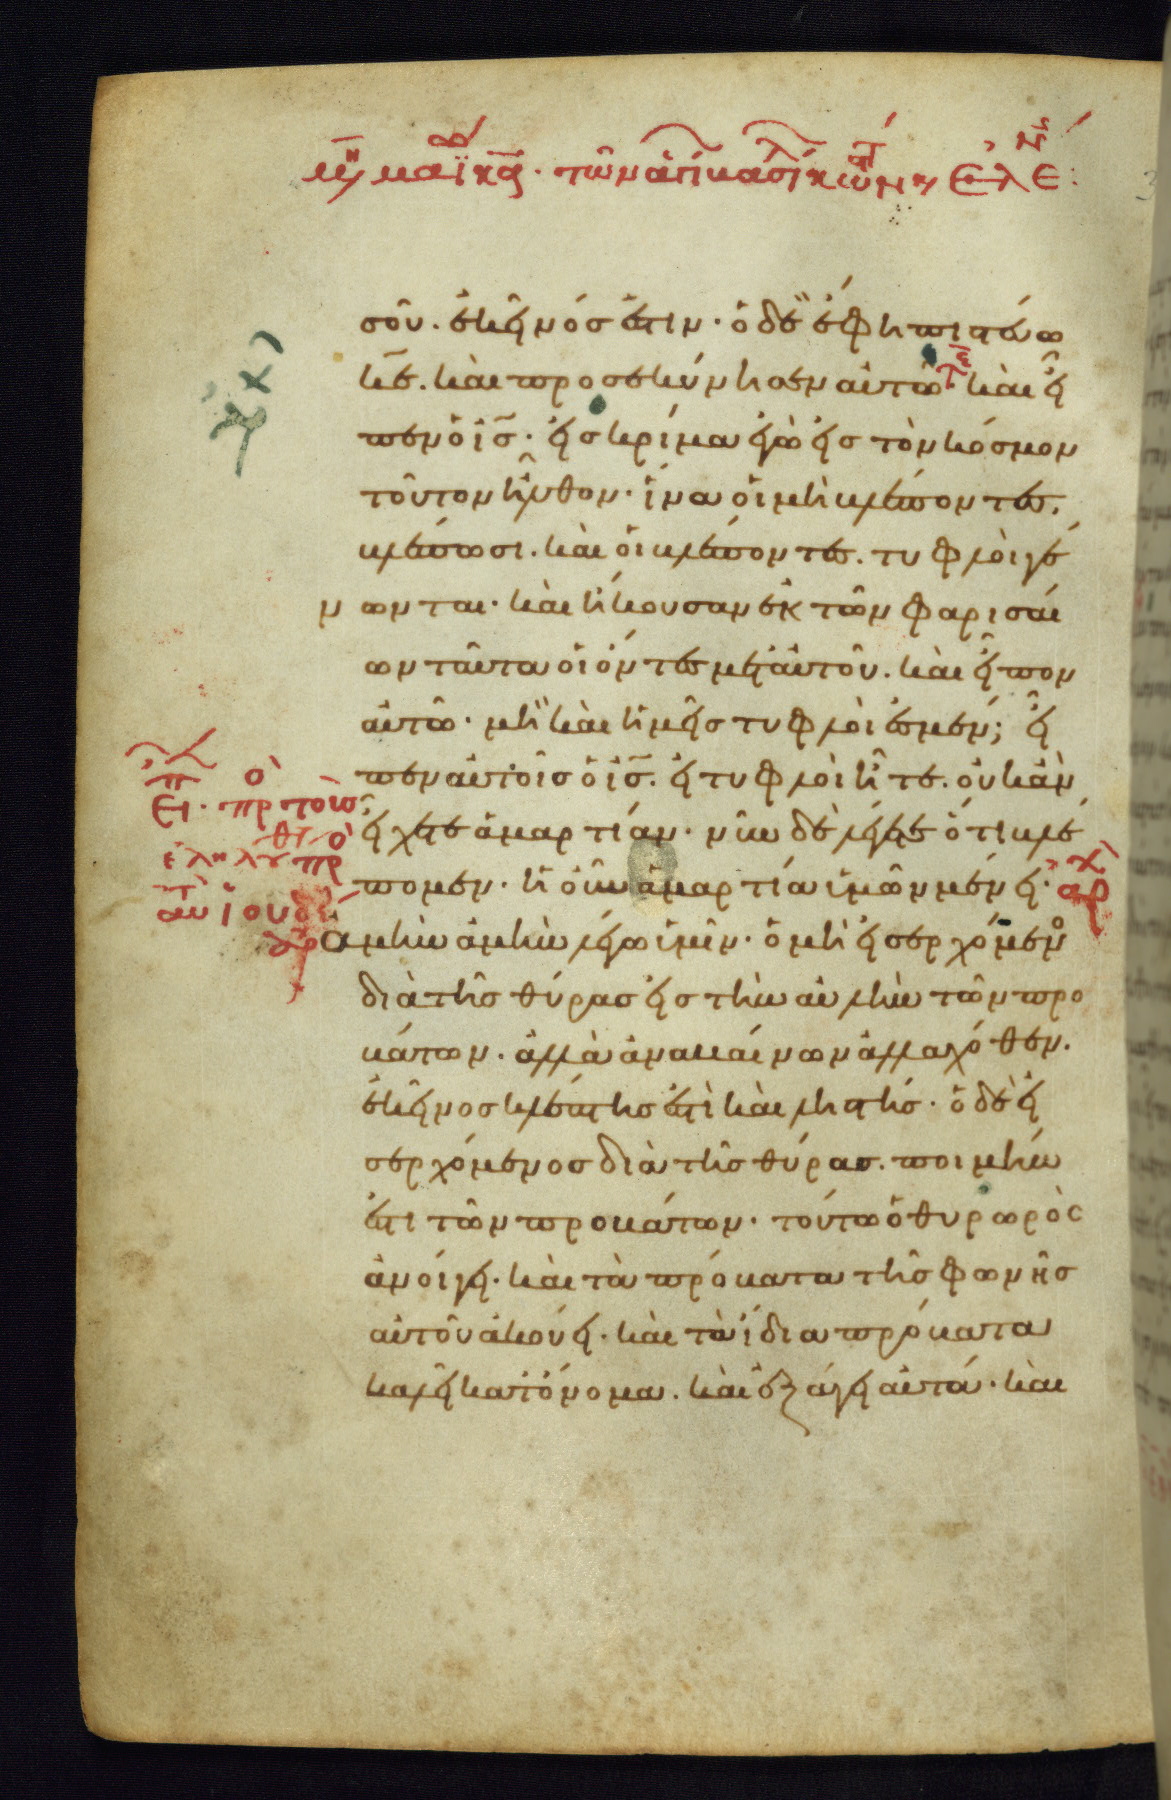 μη μαϊ κα. τῶν ἁγί κωνσ κ ελε:
σοῦ. ἐκεῖνός ἐστιν. ὁ δὲ ἔφη πιστεύω
κε. καὶ προσεκύνησεν αὐτῶ. καὶ εἶ
πεν ὁ ισ. εἰς κρίμα ἐγὼ εἰς τὸν κόσμον
τοῦτον ἦλθον. ἵνα οἱ μὴ βλέποντες.
βλέπωσι. καὶ οἱ βλέποντες. τυφλοὶ γέ
νωνται. καὶ ἤκουσαν ἐκ τῶν φαρισαί
ων ταῦτα οἱ ὄντες μετ αὐτοῦ. καὶ εἶπον
αὐτῶ. μὴ καὶ ἡμεῖς τυφλοὶ ἐσμέν; εἶ
πεν αὐτοῖς ὁ ισ. εἰ τυφλοὶ ἦτε. οὐκ ἂν
εἴχετε ἁμαρτίαν. νῦν δὲ λέγετε ὅτι βλέ
πομεν. ἡ οὖν ἁμαρτία ὑμῶν μένει.
ἀμὴν ἀμὴν λέγω ὑμῖν. ὁ μὴ εἰσερχόμενος
διὰ τῆς θύρας εἰς τὴν αὐλὴν τῶν προ
βάτων. ἀλλὰ ἀναβαίνων ἀλλαχόθεν.
ἐκεῖνος κλέπτης ἐστὶ καὶ ληστής. ὁ δὲ εἰ
σερχόμενος διὰ τῆς θύρας. ποιμήν
ἐστι τῶν προβάτων. τούτω ὁ θυρωρὸς
ἀνοίγει. καὶ τὰ πρόβατα τῆς φωνῆς
αὐτοῦ ἀκούει. καὶ τὰ ἴδια πρόβατα
καλεῖ κατ ὄνομα. καὶ ἐξάγει αὐτά. καὶ